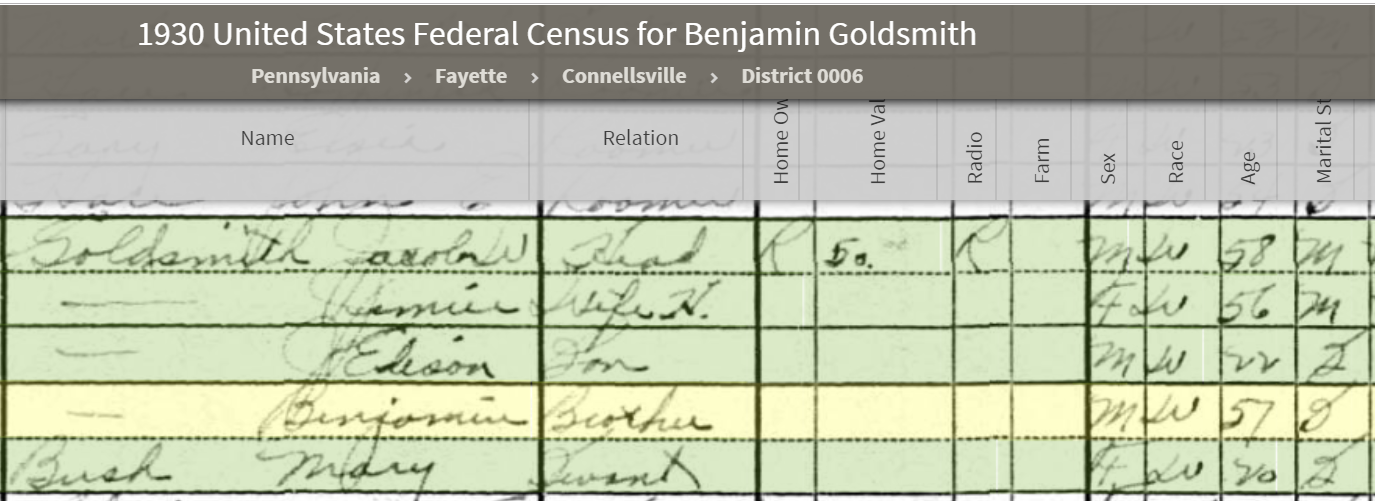 1930 United States Federal Census for Benjamin Goldsmith
Pennsylvania › Fayette › Connellsville › District 0006
Name Relation Home Ow Home Val Radio Farm Sex Race Age Marital St
Roomer
Goldsmith Jacob W Head R 50. R M W 58 M
— Wife H. F W 56 M
— Edison Son M W 22 S
— Benjamin Brother M W 57 S
Bush Mary Servant F W 20 S